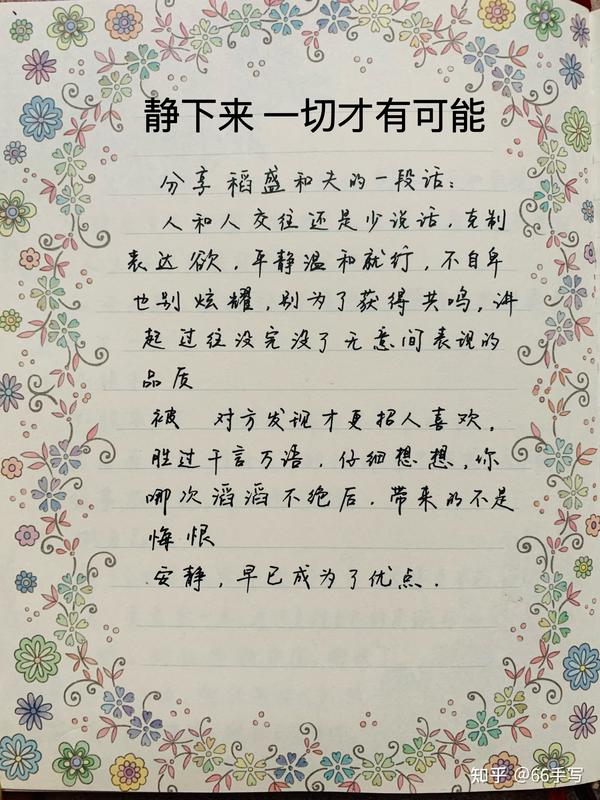 静下来 一切才有可能
分享稻盛和夫的一段话：
人和人交往还是少说话，克制
表达欲，平静温和就行，不自卑
也别炫耀，别为了获得共鸣，讲
起过往没完没了无意间表现的
品质
被 对方发现才更招人喜欢。
胜过千言万语，仔细想想，你
哪次滔滔不绝后，带来的不是
悔恨
安静，早已成为了优点．
知乎 @66手写